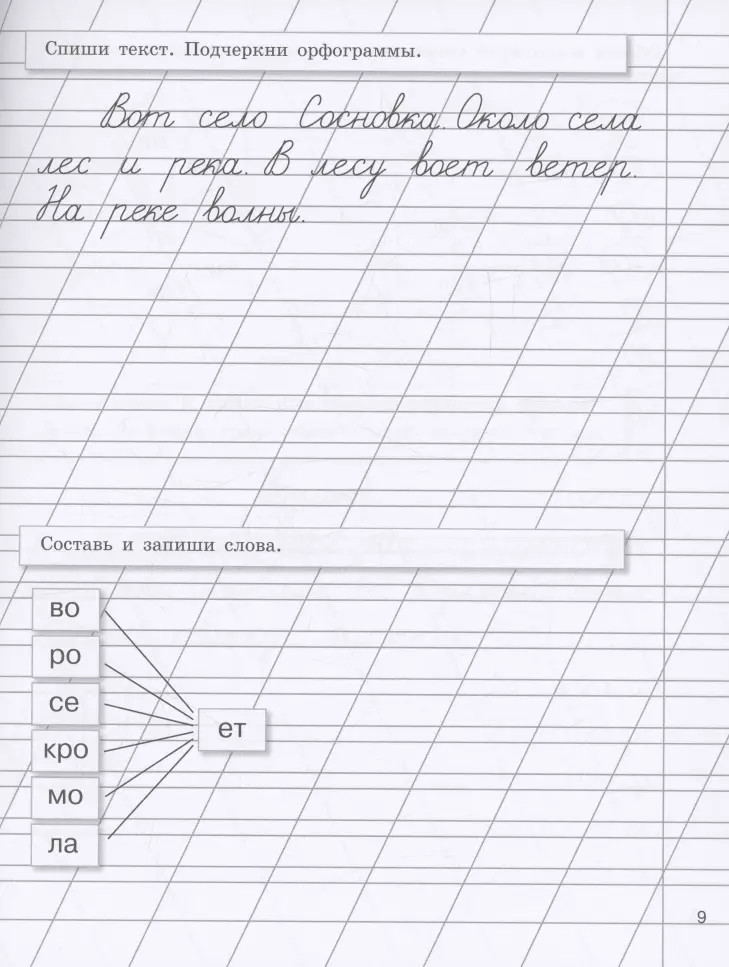 Спиши текст. Подчеркни орфограммы.
Вот село Сосновка. Около села
лес и река. В лесу воет ветер.
На реке волны.
Составь и запиши слова.
во
ро
се
ет
кро
мо
ла
9